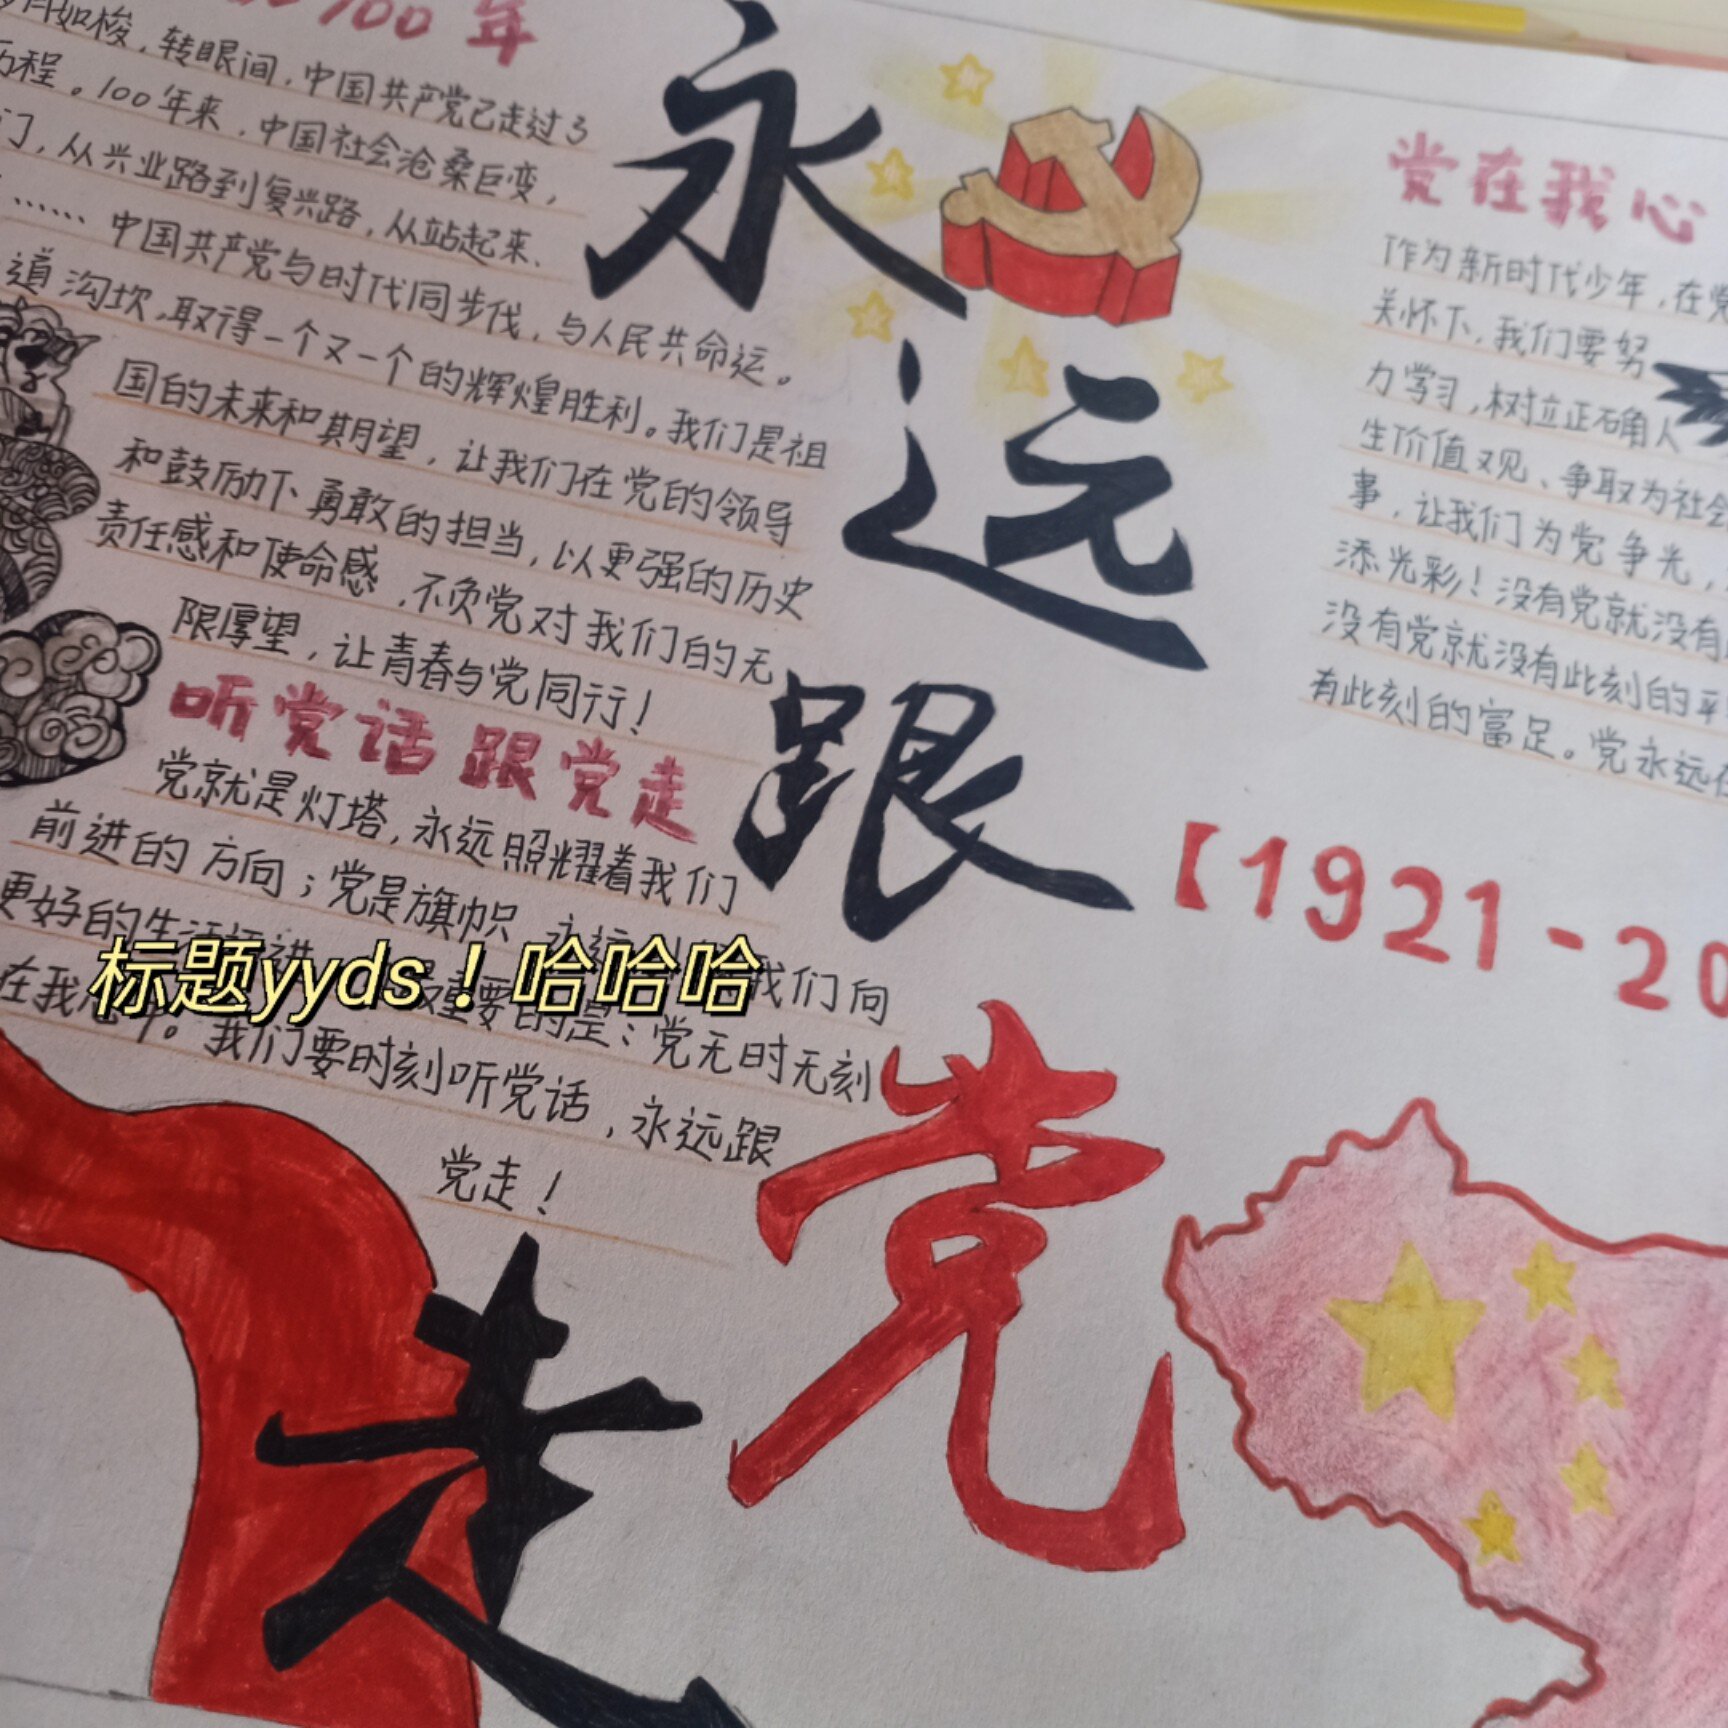 100年
月如梭，转眼间，中国共产党已走过了
历程。100年来，中国社会沧桑巨变，
们，从兴业路到复兴路，从站起来、
……中国共产党与时代同步伐，与人民共命运。
道沟坎，取得一个又一个的辉煌胜利。我们是祖
国的未来和期望，让我们在党的领导
和鼓励下勇敢的担当，以更强的历史
责任感和使命感，不负党对我们的无
限厚望，让青春与党同行！
听党话跟党走
党就是灯塔，永远照耀着我们
前进的方向；党是旗帜
更好的生活 我们向
重要的是：党无时无刻
在我 。我们要时刻听党话，永远跟
党走！
标题yyds！哈哈哈
永
远
跟
党
走
【1921-20
党在我心
作为新时代少年，在党
关怀下，我们要努
力学习，树立正确人
生价值观、争取为社会
事，让我们为党争光，
添光彩！没有党就没有
没有党就没有此刻的平
有此刻的富足。党永远在